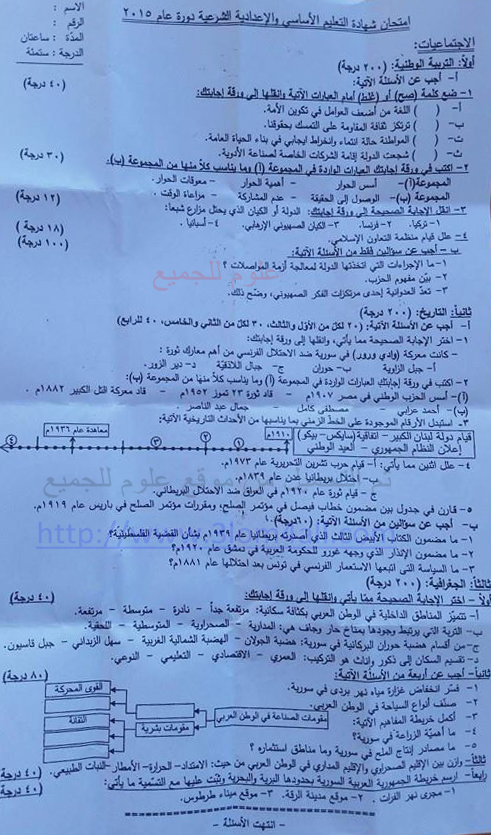 امتحان شهادة التعليم الأساسي والإعدادية الشرعية دورة عام ٢٠١٥
الاسم :
الرقم :
المدة : ساعتان
الدرجة : ستمئة
الاجتماعيات:
أولاً: التربية الوطنية: (٢٠٠ درجة)
أ- أجب عن الأسئلة الآتية:
١- ضع كلمة (صح) أو (غلط) أمام العبارات الآتية وانقلها إلى ورقة إجابتك: (٤٠ درجة)
أ- ( ) اللغة من أضعف العوامل في تكوين الأمة.
ب- ( ) ترتكز ثقافة المقاومة على التمسك بحقوقنا.
ت- ( ) المواطنة حالة انتماء وانخراط ايجابي في بناء الحياة العامة.
ث- ( ) شجعت الدولة إقامة الشركات الخاصة لصناعة الأدوية.
٢- اكتب في ورقة إجابتك العبارات الواردة في المجموعة (أ) وما يناسب كلاً منها من المجموعة (ب). (٣٠ درجة)
المجموعة(أ)- أسس الحوار - أهمية الحوار - معوقات الحوار.
المجموعة (ب)- الوصول إلى الحقيقة - عدم المشاركة - مراعاة الوقت. (١٢ درجة)
٣- انقل الإجابة الصحيحة إلى ورقة إجابتك: الدولة أو الكيان الذي يحتل مزارع شبعا:
١- تركيا. ٢- فرنسا. ٣- الكيان الصهيوني الإرهابي. ٤- أسبانيا. (١٨ درجة)
٤- علل قيام منظمة التعاون الإسلامي.
ب - أجب عن سؤالين فقط من الأسئلة الآتية: (١٠٠ درجة)
١- ما الإجراءات التي اتخذتها الدولة لمعالجة أزمة المواصلات ؟
٢- بيّن مفهوم الحزب.
٣- تعدّ العدوانية إحدى مرتكزات الفكر الصهيوني، وضح ذلك.
علوم للجميع
ثانياً: التاريخ: (٢٠٠ درجة)
أ - أجب عن الأسئلة الآتية: (٢٠ لكل من الأول والثالث، ٣٠ لكل من الثاني والخامس، ٤٠ للرابع)
١- اختر الإجابة الصحيحة مما يأتي، وانقلها إلى ورقة إجابتك:
- كانت معركة (وادي ورور) في سورية ضد الاحتلال الفرنسي من أهم معارك ثورة :
أ- جبل الزاوية ب- حوران ج- جبال اللاذقيّة د- دير الزور.
٢- اكتب في ورقة إجابتك العبارات الواردة في المجموعة (أ) وما يناسب كلاً منها من المجموعة (ب):
(أ)- أسس الحزب الوطني في مصر ١٩٠٧م - قاد ثورة ٢٣ تموز ١٩٥٢م - قاد معركة التل الكبير ١٨٨٢م .
(ب)- أحمد عرابي - مصطفى كامل - جمال عبد الناصر
٣- استبدل الأرقام الموجودة على الخط الزمني بما يناسبها من الأحداث التاريخية الآتية:
قيام دولة لبنان الكبير - اتفاقية (سايكس- بيكو)
إعلان النظام الجمهوري - العيد الوطني
١٩١٠م ١ ٢ ٣ معاهدة عام ١٩٣٦م ٤
٤- علل اثنين مما يأتي: أ- قيام حرب تشرين التحريرية عام ١٩٧٣م.
ب- احتلال بريطانيا عدن عام ١٨٣٩م.
ج- قيام ثورة عام ١٩٢٠م في العراق ضد الاحتلال البريطاني.
موقع علوم للجميع
٥- قارن في جدول بين مضمون خطاب فيصل في مؤتمر الصلح، ومقررات مؤتمر الصلح في باريس عام ١٩١٩م.
ب- أجب عن سؤالين من الأسئلة الآتية: (٦٠ درجة)
١- ما مضمون الكتاب الأبيض الثالث الذي أصدرته بريطانيا عام ١٩٣٩م بشأن القضية الفلسطينية؟
http://
٢- ما مضمون الإنذار الذي وجهه غورو للحكومة العربية في دمشق عام ١٩٢٠م؟
٣- ما السياسة التي اتبعها الاستعمار الفرنسي في تونس بعد احتلالها عام ١٨٨١م؟
ثالثاً: الجغرافية: (٢٠٠ درجة)
أولاً - اختر الإجابة الصحيحة مما يأتي وانقلها إلى ورقة إجابتك: (٤٠ درجة)
أ- تتميّز المناطق الداخلية في الوطن العربي بكثافة سكانية: مرتفعة جداً - نادرة - متوسطة - مرتفعة.
ب- التربة التي يرتبط وجودها بمناخ حار وجاف هي: المدارية - الصحراوية - المتوسطية - اللحقية.
ج- من أقسام هضبة حوران البركانية في سورية: هضبة الجولان - الهضبة الشمالية الغربية - سهل الزبداني - جبل قاسيون.
د- تقسيم السكان إلى ذكور وإناث هو التركيب: العمري - الاقتصادي - التعليمي - النوعي.
ثانياً- أجب عن أربعة من الأسئلة الآتية: (٨٠ درجة)
١- فسّر انخفاض غزارة مياه نهر بردى في سورية.
٢- صنّف أنواع السياحة في الوطن العربي.
٣- أكمل خريطة المفاهيم الآتية:
مقومات الصناعة في الوطن العربي
مقومات بشرية
القوى المحركة
التقانة
٤- ما أهمّية الزراعة في سورية؟
٥- ما مصادر إنتاج الملح في سورية وما مناطق استثماره ؟
ثالثاً- وازن بين الإقليم الصحراوي والإقليم المداري في الوطن العربي من حيث: الامتداد- الحرارة- الأمطار- النبات الطبيعي. (٤٠ درجة)
رابعاً- ارسم خريطة الجمهورية العربية السورية بحدودها البرية والبحرية وثبت عليها مع التسمية ما يأتي: (٤٠ درجة)
١- مجرى نهر الفرات . ٢- موقع مدينة الرقة. ٣- موقع ميناء طرطوس.
- انتهت الأسئلة -